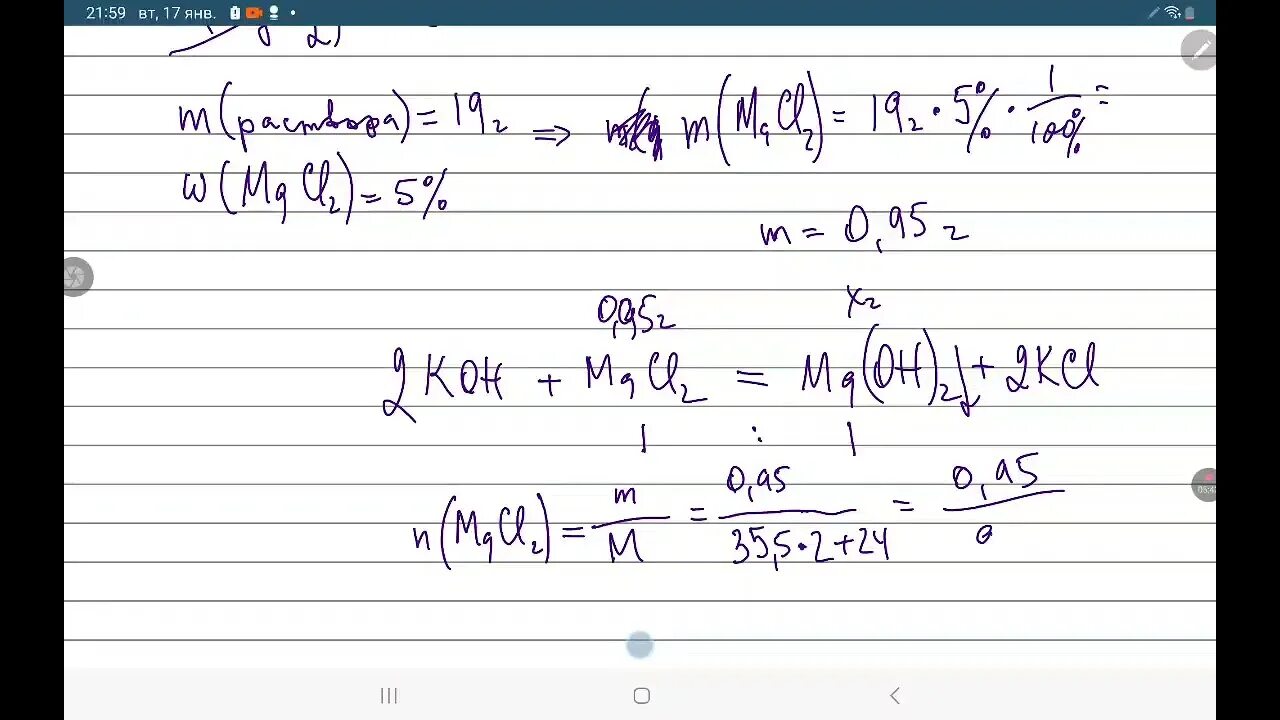 21:59 вт, 17 янв.
2)
m(раствора) = 19г ⇒ m(MgCl₂) = 19г · 5% · 1/100% =
w(MgCl₂) = 5%
m = 0,95 г
0,95г xг
2KOH + MgCl₂ = Mg(OH)₂↓ + 2KCl
1 : 1
n(MgCl₂) = m/M = 0,95/35,5·2+24 = 0,95/